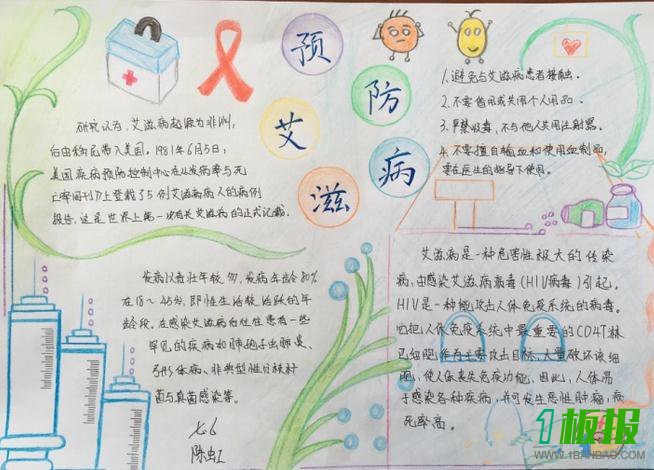 预
防
艾
滋
病
研究认为,艾滋病起源为非洲,
后由移民带入美国。1981年6月5日,
美国疾病预防控制中心在《发病率与死
亡率周刊》上登载了5例艾滋病病人的病例
报告,这是世界上第一次有关艾滋病的正式记载。
1.避免与艾滋病患者接触。
2.不要借用或共用个人用品。
3.严禁吸毒,不与他人共用注射器。
4.不要擅自输血和使用血制品,
要在医生的指导下使用。
发病以青壮年较多,发病年龄80%
在18~45岁,即性生活较活跃的年
龄段。在感染艾滋病后往往患有一些
罕见的疾病如肺孢子虫肺炎、
弓形体病、非典型性分枝杆
菌与真菌感染等。
艾滋病是一种危害性极大的传染
病,由感染艾滋病病毒(HIV病毒)引起。
HIV是一种能攻击人体免疫系统的病毒。
它把人体免疫系统中最重要的CD4T淋
巴细胞作为主要攻击目标,大量破坏该细
胞,使人体丧失免疫功能。因此,人体易
于感染各种疾病,并可发生恶性肿瘤,病
死率高。
七6
陈虹
1板报
WWW.1BANBAO.COM